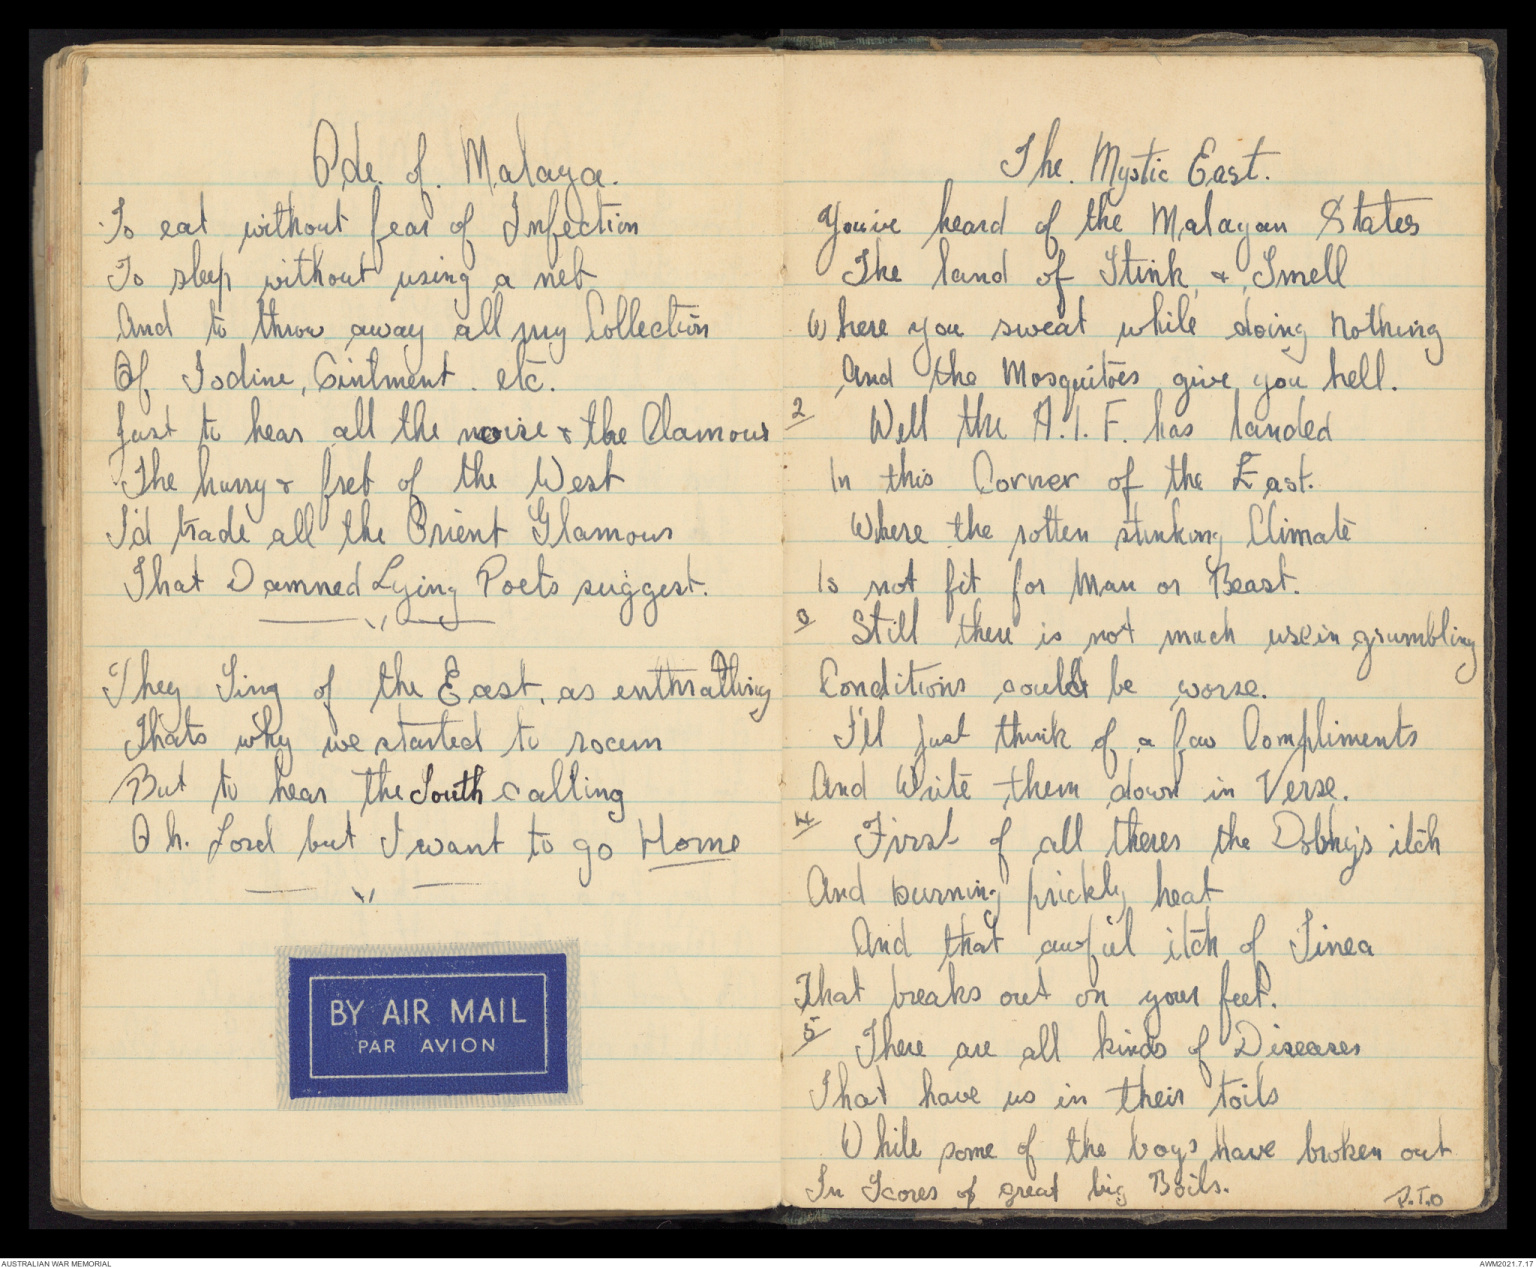 Ode. of. Malaya.
To eat without fear of Infection
To sleep without using a net
And to throw away all my Collection
Of Iodine, Ointment. etc.
Just to hear all the noise & the Clamour
The hurry & fret of the West
I'd trade all the Orient Glamour
That Damned Lying Poets suggest.
They Sing of the East, as enthralling
Thats why we started to roam
But to hear the South calling
Oh. Lord but I want to go Home
BY AIR MAIL
PAR AVION
The. Mystic East.
You've heard of the Malayan States
The land of Stink & Smell
Where you sweat while doing nothing
And the Mosquitoes give you hell.
2 Well the A.I.F. has landed
In this Corner of the East.
Where the rotten stinking Climate
Is not fit for Man or Beast.
3 Still there is not much use in grumbling
Conditions could be worse.
I'll just think of a few Compliments
And Write them down in Verse.
4 First of all theres the Dobhys itch
And burning prickly heat
And that awful itch of Tinea
That breaks out on your feet.
5 There are all kinds of Diseases
That have us in their toils
While some of the boys have broken out
In Scores of great big Boils.
P.T.O
AUSTRALIAN WAR MEMORIAL
AWM2021.7.17